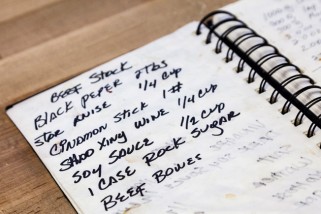 BEEF STOCK
BLACK PEPER 2TBS
STAR ANISE 1/4 CUP
CINAMON STICK 1#
SHAO XING WINE 1/4 CUP
SOY SAUCE 1/2 CUP
1 CASE ROCK SUGAR
BEEF BONES